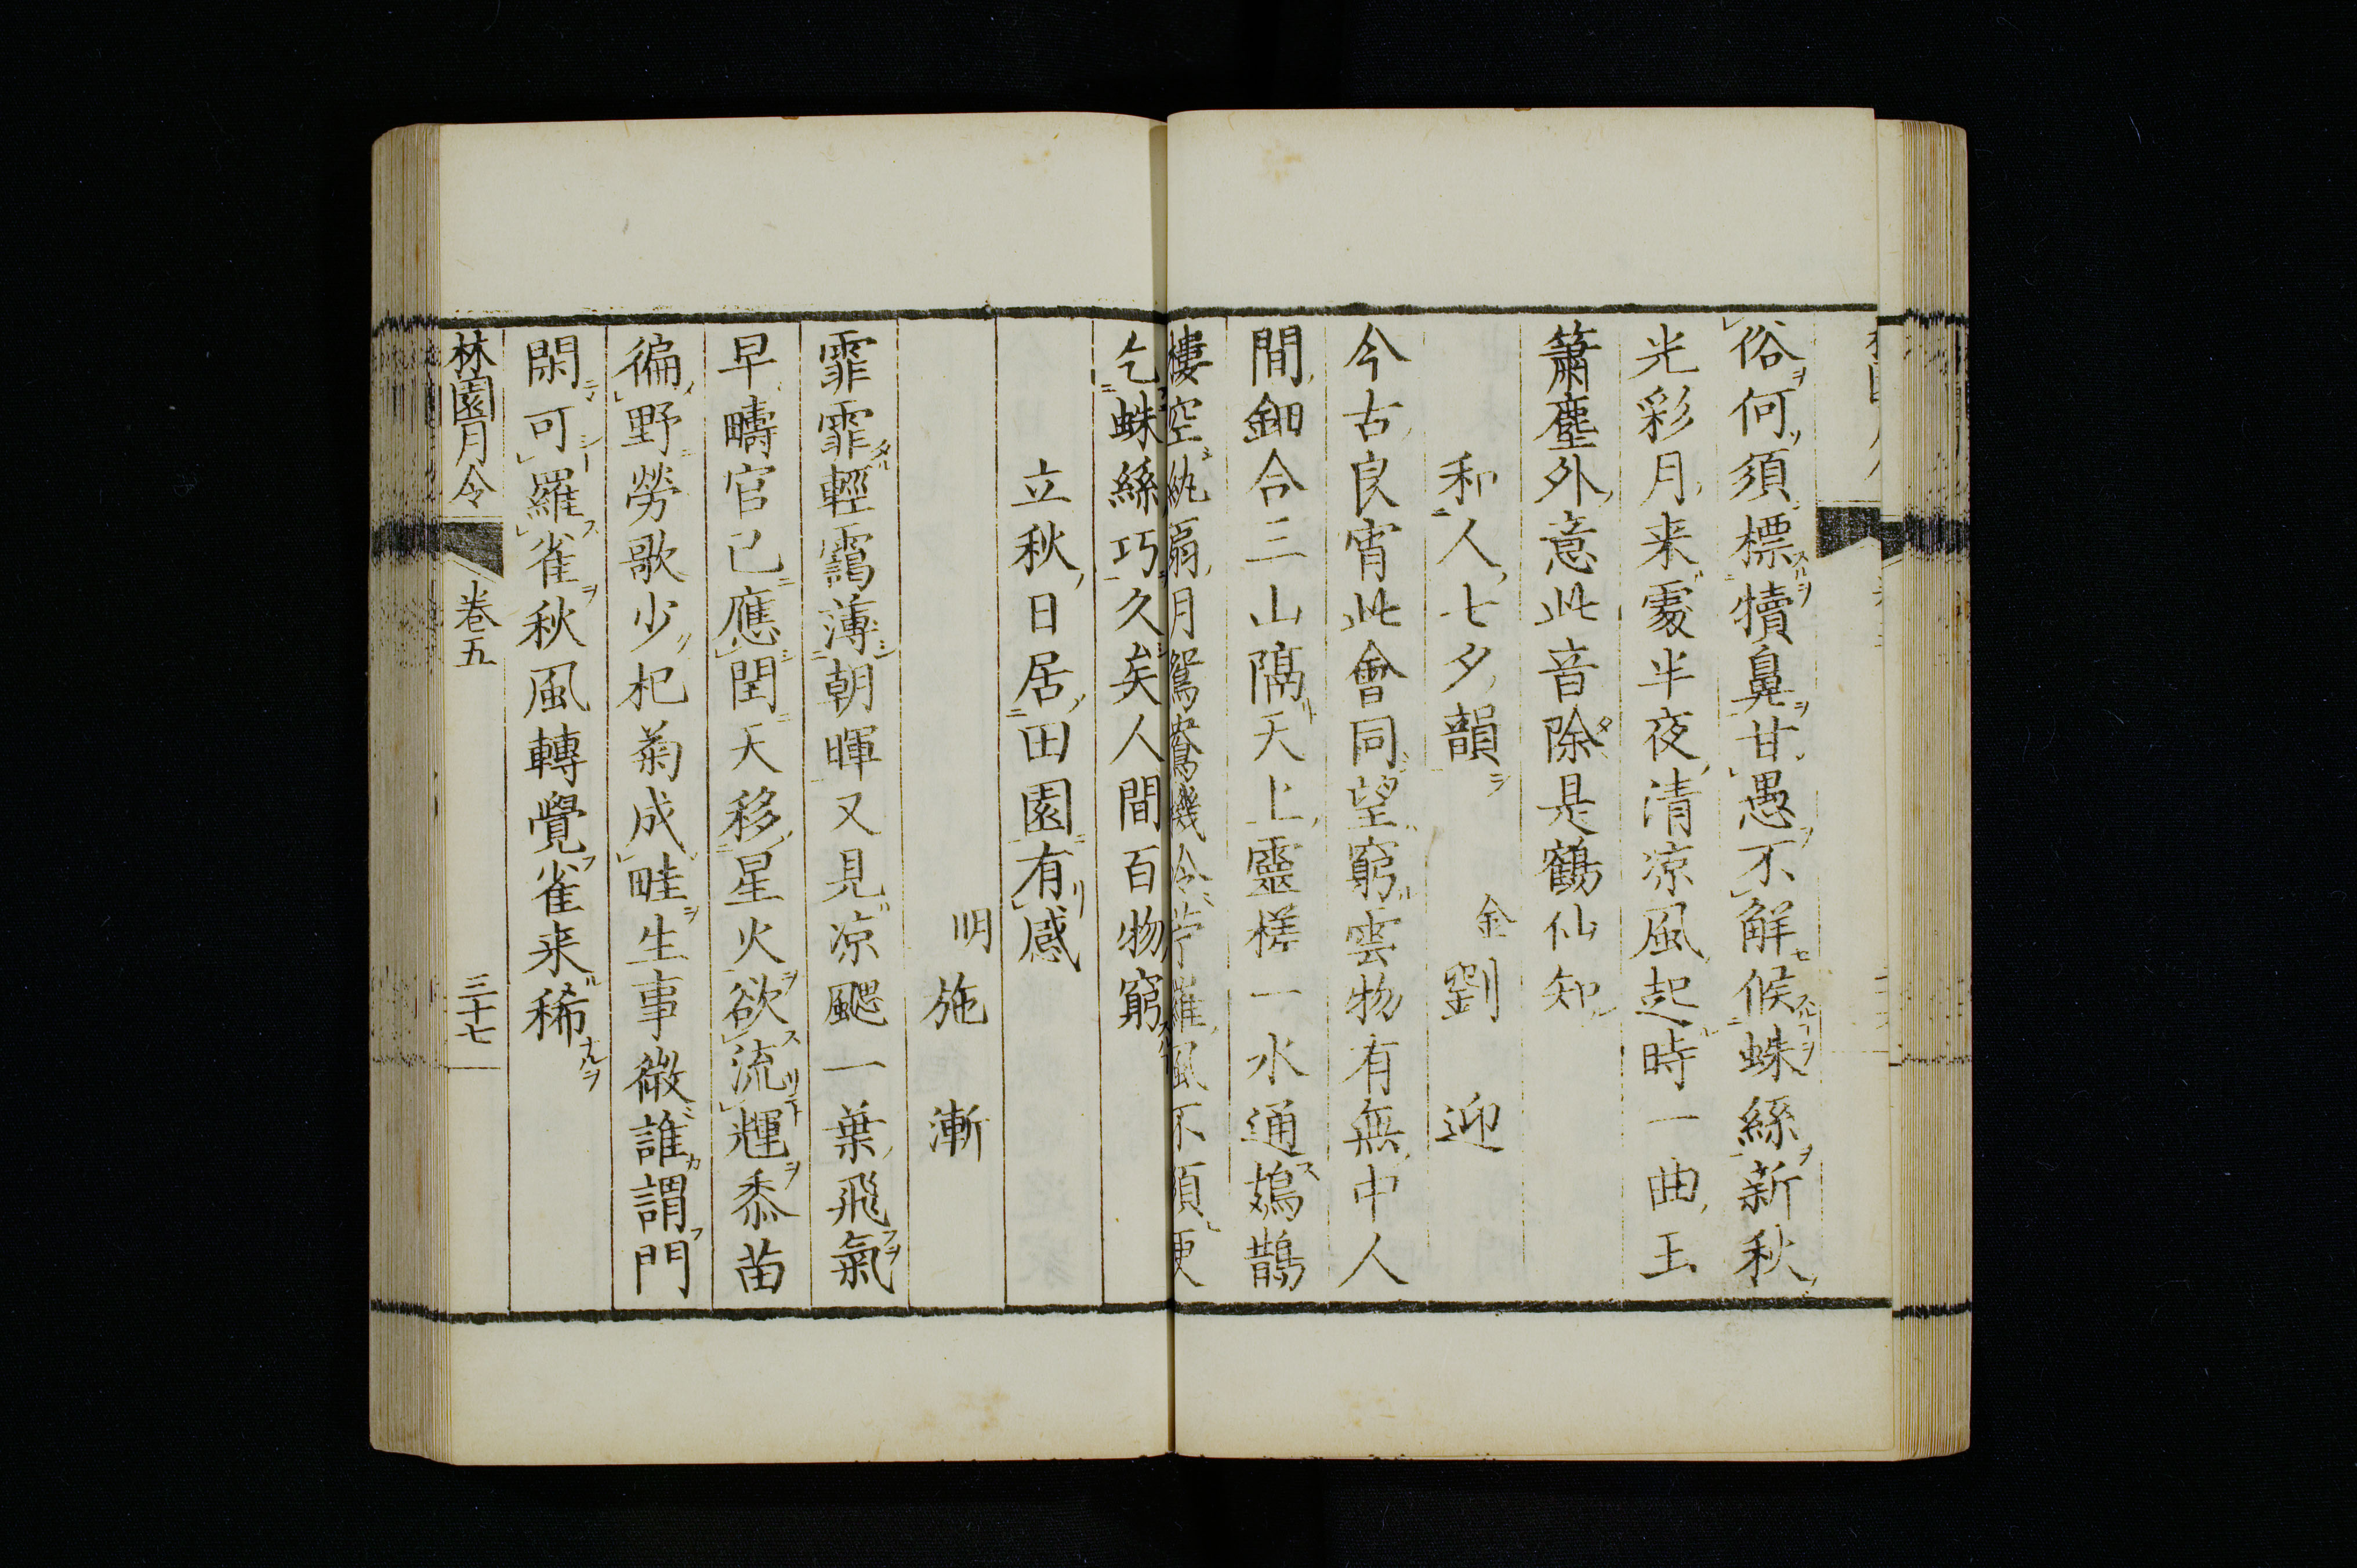 俗何須標犢鼻甘愚不解候蛛絲新秋
光彩月来處半夜清凉風起時一曲玉
簫塵外意此音除是鶴仙知
和人七夕韻
金劉迎
今古良宵此會同望窮雲物有無中人
間鈿合三山隔天上靈槎一水通鵁鵲
樓空紈扇月鴛鴦機冷苧羅風不須更
乞蛛絲巧久矣人間百物窮
立秋日居田園有感
明施漸
霏霏輕靄薄朝暉又見凉颸一葉飛氣
早疇官已應閏天移星火欲流輝黍苗
徧野勞歌少杞菊成畦生事微誰謂門
閑可羅雀秋風轉覺雀来稀
林園月令
卷五
三十七